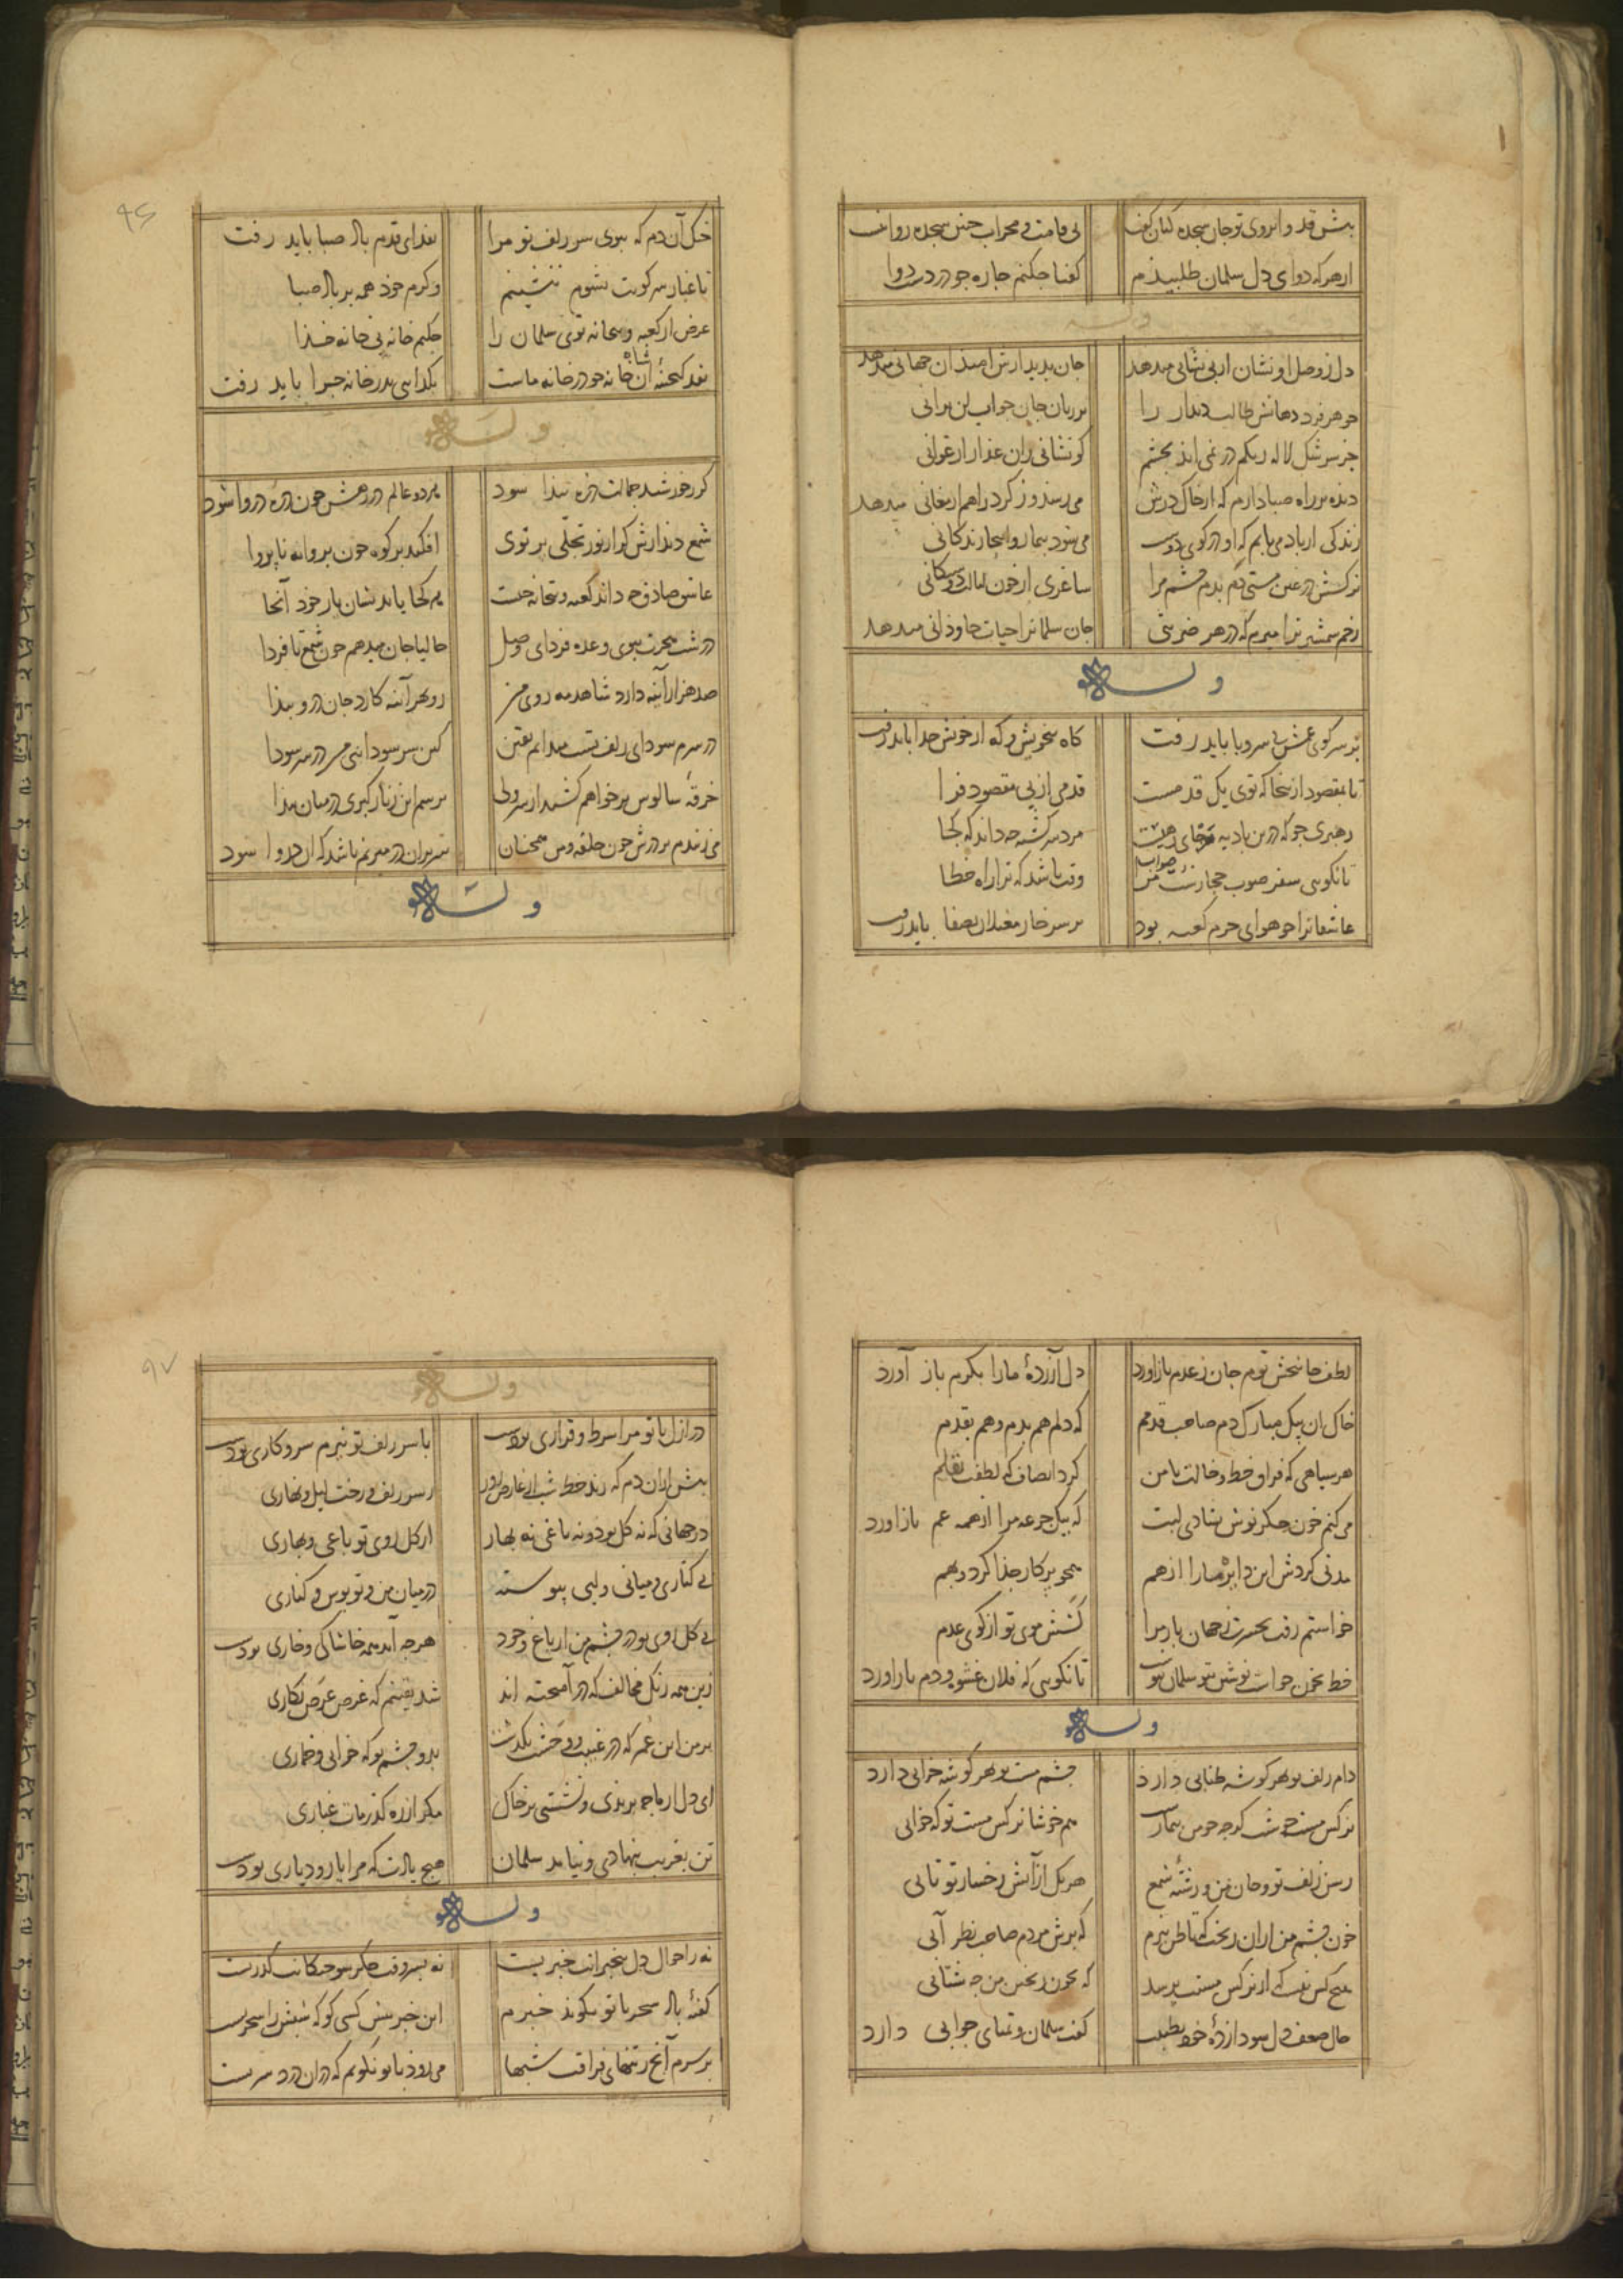 پیش قد و ابروی تو جان سجده کنان گفت
بی قامت و محراب چنین سجده روا نیست
از هر که دوای دل سلمان طلبیدم
گفتا چکنم چاره چو دردست دوا نیست
وله
دل ز وصل او نشان از بی نشانی میدهد
جان بدیدارش امید آن جهانی میدهد
جوهر فرد دهانش طالب دیدار را
بر زبان جان جواب لن ترانی
جز سرشک لاله رنگم در نمی آید بچشم
کو نشانی زان عذار ارغوانی
دیده بر راه صبا دارم که از خاک درش
می رسد وز گرد راهم ارمغانی میدهد
زندگی از باد می یابم که او در کوی دوست
می شود بیمار و آنجا زندگانی
نرگسش در عین مستی دم بدم چشم مرا
ساغری از خون مالامال دوستکانی
زخم شمشیر ترا میرم که در هر ضربتی
جان سلمانرا حیات جاودانی میدهد
وله
بر سر کوی عشق بی سر و پا باید رفت
گاه با خویش و گه از خویش جدا باید رفت
تا بمقصود ازینجا که توی یک قدمست
قدمی از پی مقصود فرا
رهبری جو که درین بادیه هر جای رهیست
مرد سرگشته چه داند که کجا
تا نگویی سفر صوب حجازست صواب
وقت باشد که ترا راه خطا
عاشقانرا چو هوای حرم کعبه بود
بر سر خار مغیلان بصفا باید رفت
۹۶
خنک آن دم که ببوی سر زلف تو مرا
بفدای قدم باد صبا باید رفت
تا غبار سر کویت نشوم ننشینم
وگرم خود همه بر باد صبا
غرض از کعبه و بتخانه توی سلمان را
چکنم خانه بی خانه خدا
نقد گنجینه آن شاه چو در خانه ماست
بگدایی بدر خانه چرا باید رفت
وله
گر ز خورشید جمالت ذره پیدا شود
هر دو عالم در رهش چون ذره دروا شود
شمع دیدارش گر از نور تجلی پرتوی
افکند بر کوه چون پروانه ناپروا
عاشق صادق چه داند کعبه و بتخانه چیست
هر کجا یابد نشان یار خود آنجا
در شب هجرت ببوی وعده فردای وصل
حالیا جان میدهم چون شمع تا فردا
صد هزار آینه دارد شاهد مه روی من
رو بهر آینه کارد جان درو پیدا
در سرم سودای زلف تست میدانم یقین
کین سر سودایی من در سر سودا
خرقه سالوس بر خواهم کشید از سر ولی
ترسم این زنار گبری در میان پیدا
می زندم بر درش چون حلقه و من همچنان
سر بران در میزنم باشد که آن در وا شود
وله
لطف جانبخش توم جان ز عدم باز آورد
دل آزرده ما را بکرم باز آورد
خاک آن پیک مبارک دم صاحب قدمم
که دلم هم بدم و هم بقدم
هر سیاهی که فراق خط و خالت با من
کرد انصاف که لطفت بقلم
می کنم خون جگر نوش بشادی لبت
که بیک جرعه مرا از همه غم باز آورد
مدتی گردش این دایره ما را از هم
همچو پرکار جدا کرد و بهم
خواستم رفت بحسرت ز جهان بار مرا
کشش موی تو از کوی عدم
تا نگویی که فلان عشوه و دم باز آورد
وله
دام زلف تو بهر گوشه طنابی دارد
چشم مست تو بهر گوشه خرابی دارد
نرگس مست خوشت گرچه چو من بیمارست
هم خوشا نرگس مست تو که خوابی
رسن زلف تو و جان من و رشته شمع
هر یک از آتش رخسار تو تابی
خون چشم من ازان ریخت که تا ظن نبرم
که برش مردم صاحب نظر آبی
هیچ کس نیست که از نرگس مستت پرسد
که بخون ریختن من چه شتابی
حال ضعف دل سودازده خود بطبیب
گفت سلمان و تمنای جوابی دارد
۹۷
وله
در ازل با تو مرا شرط و قراری بودست
با سر زلف تو نیزم سر و کاری بودست
پیش ازان دم که زند خط شب از عارض روز
ز سر زلف و رخت لیل و نهاری
در جهانی که نه گل بود و نه باغی نه بهار
از گل روی تو باغی و بهاری
بی کناری و میانی و لبی پیوسته
در میان من و تو بوس و کناری
بی گل روی تو در چشم من از باغ وجود
هرچه آمد همه خاشاکی و خاری بودست
زین همه رنگ مخالف که در آمیخته اند
شد یقینم که غرض عرض نگاری
بر من این عمر که در غیبت رویت بگذشت
بدو چشم تو که خوابی و خماری
ای دل از ما چه پریدی و نشستی بر خاک
مگر از ره گذر مات غباری
تن بغربت بنهادی و نیامد سلمان
هیچ یادت که مرا یار و دیاری بودست
وله
نه ز احوال دل بیخبرانت خبریست
نه بسر وقت جگر سوختگانت گذریست
گفته باد سحر با تو بگوید خبرم
این خبر پیش کسی گو که شبش را سحریست
بر سرم آنچ ز تنهای فراقت شبها
می رود با تو نگویم که دران درد سریست